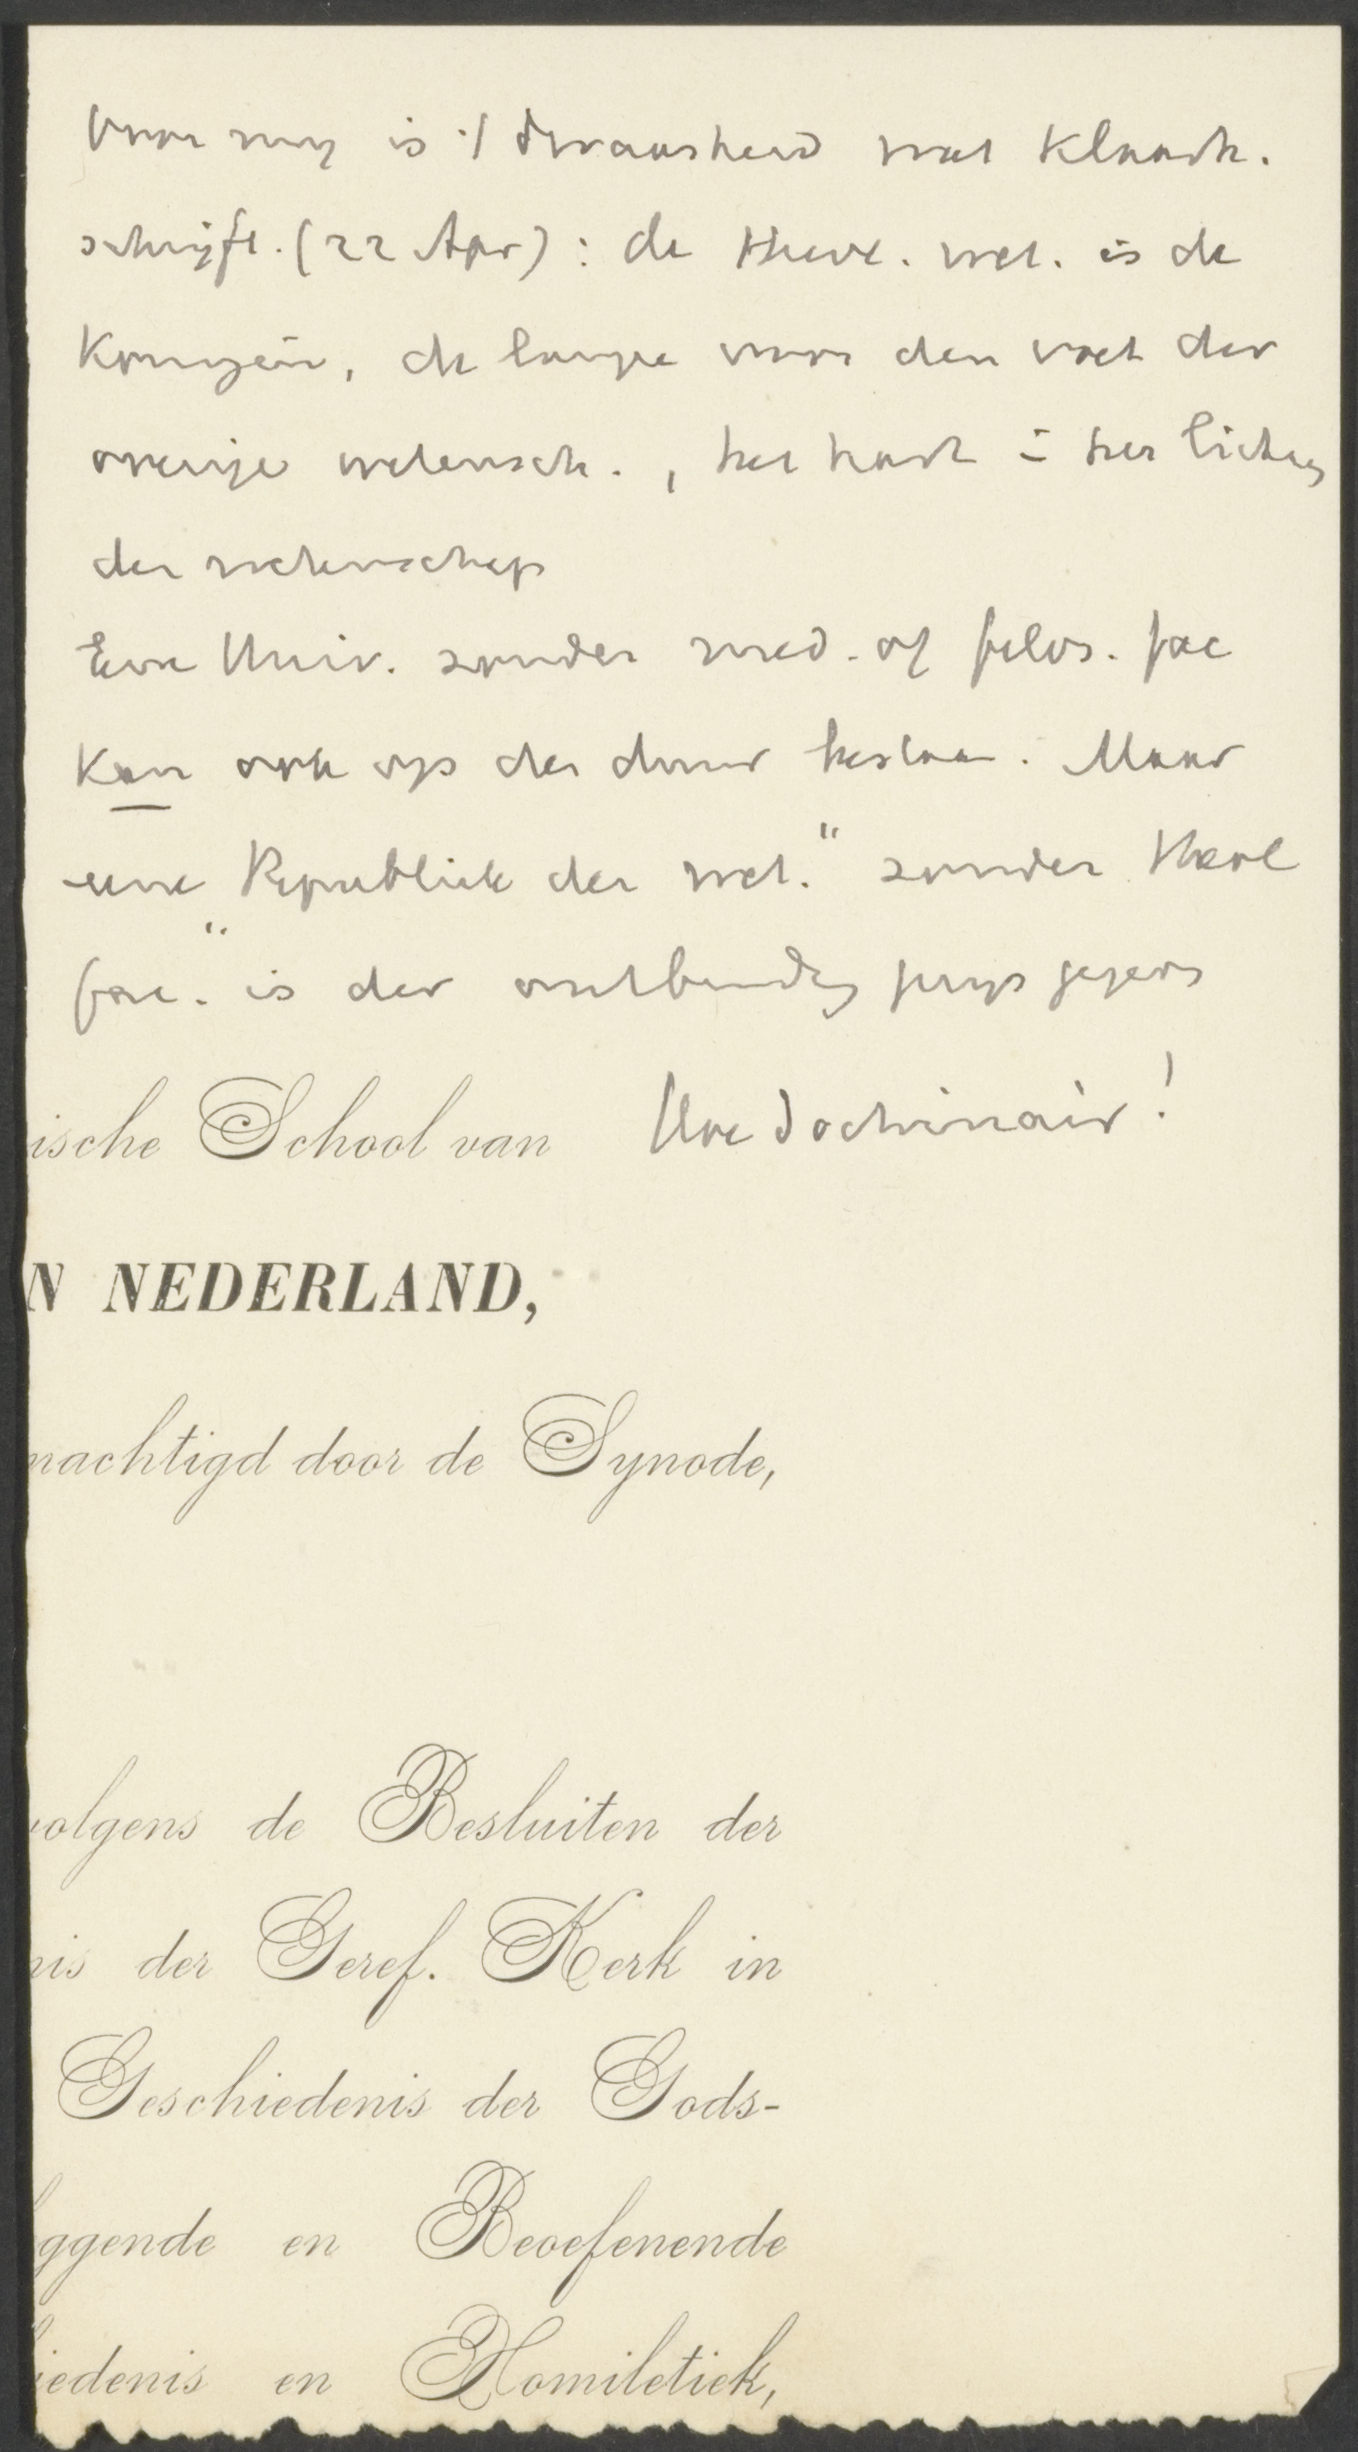 Voor mij is 't dwaasheid wat Klaarh.
schrijft. (22 Apr): de theol. wet. is de
Koningin, de lampe voor den voet der
overige wetensch., het hart i het lichaam
der wetenschap
Eene Univ. zonder med. of filos. fac
kan ook op den duur bestaan. Maar
eene "Republiek der wet." zonder theol
fac." is der ontbinding prijs gegeven
Hoe doctrinair!
ische School van
N NEDERLAND,
machtigd door de Synode,
volgens de Besluiten der
nis der Geref. Kerk in
Geschiedenis der Gods-
ggende en Beoefenende
iedenis en Homiletiek,